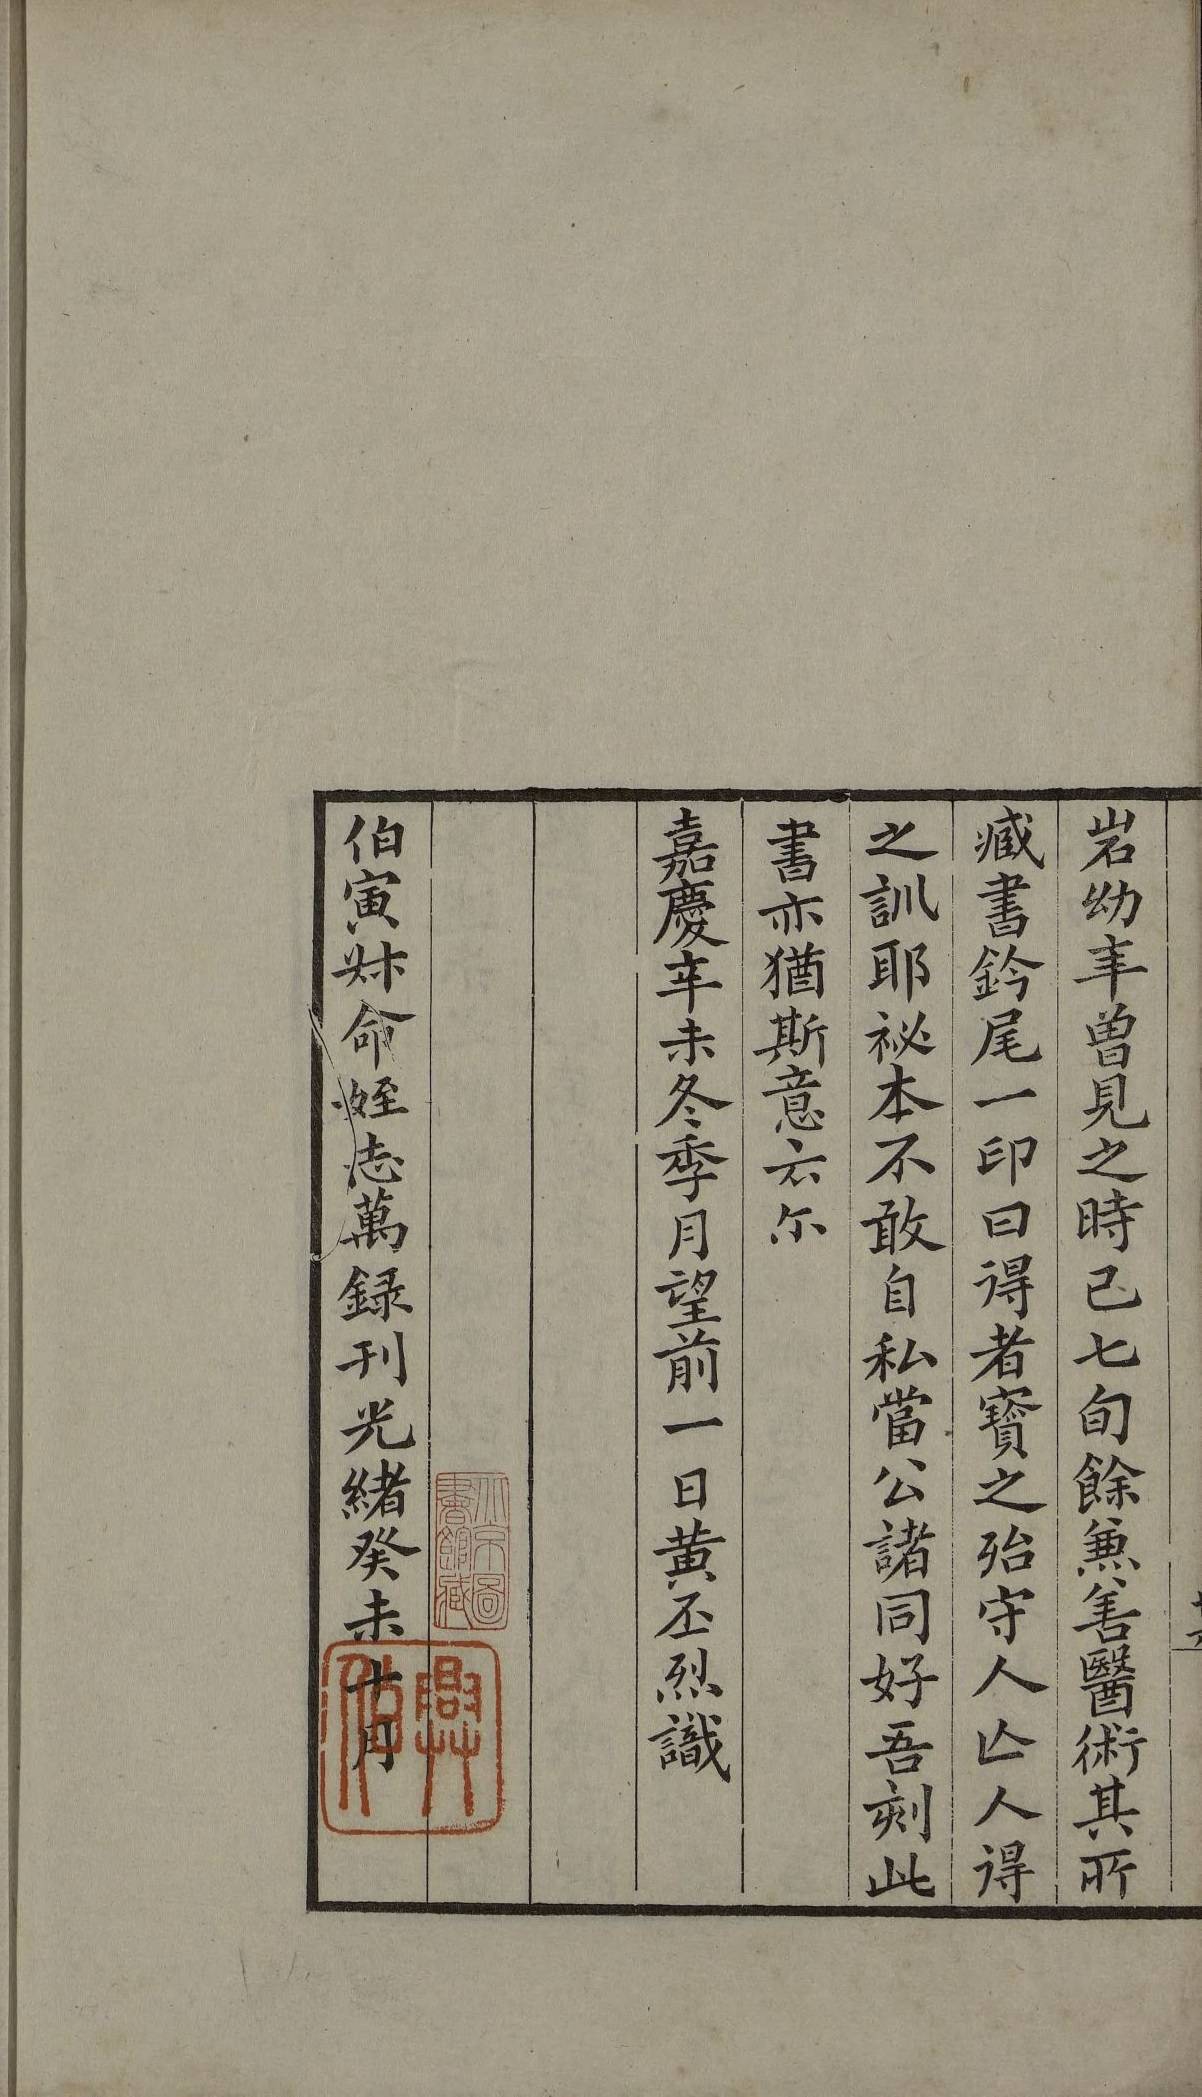 岩幼年曽見之時已七旬餘兼善醫術其所
臧書鈐尾一印曰得者寳之殆守人亾人得
之訓耶祕本不敢自私當公諸同好吾刻此
書亦猶斯意云尔
嘉慶辛未冬季月望前一日黄丕烈識
伯寅叔命姪志萬録刊光緒癸未十月